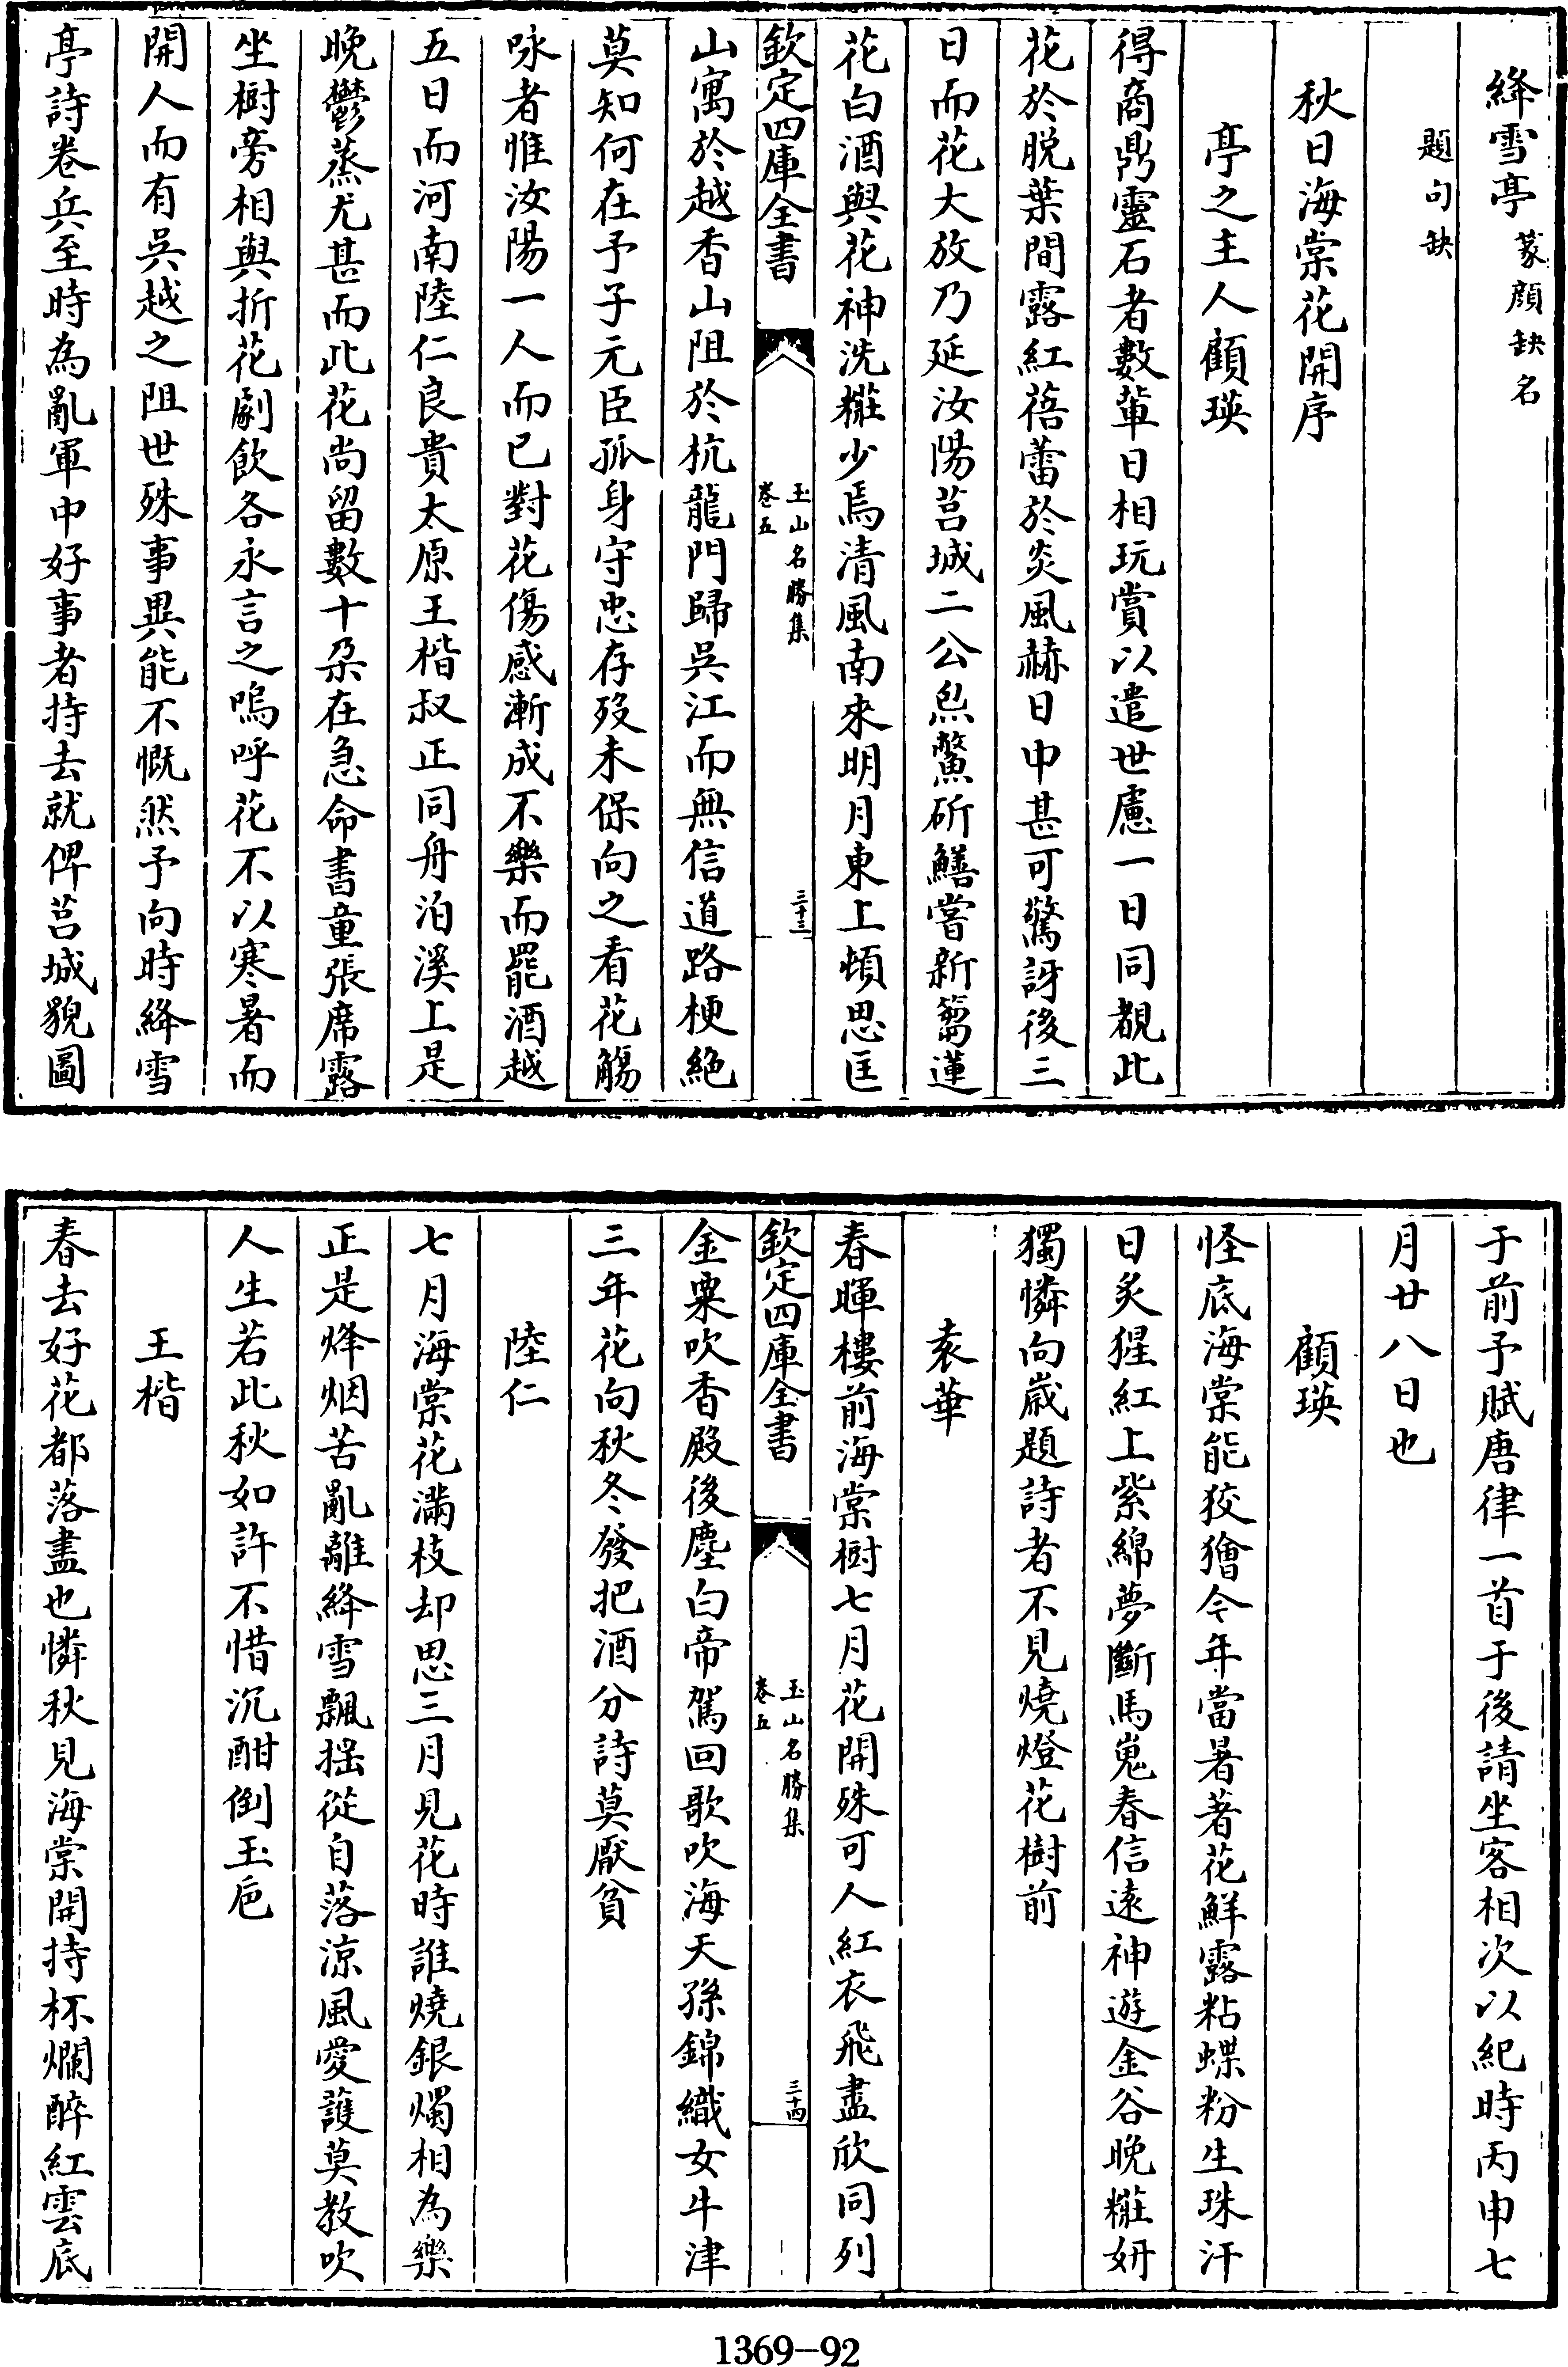 絳雪亭篆顔缺名
題句缺
秋日海棠花開序
亭之主人顧瑛
得商鼎靈石者數輩日相玩賞以遣世慮一日同覩此
花於脱葉間露紅蓓蕾於炎風赫日中甚可驚訝後三
日而花大放乃延汝陽莒城二公炰鱉斫鱔嘗新蒭蓮
花白酒與花神洗糚少焉清風南來明月東上頓思匡
欽定四庫全書
玉山名勝集
卷五
三十三
山寓於越香山阻於杭龍門歸吳江而無信道路梗絶
莫知何在予子元臣孤身守忠存歿未保向之看花觴
咏者惟汝陽一人而已對花傷感漸成不樂而罷酒越
五日而河南陸仁良貴太原王楷叔正同舟泊溪上是
晚鬱蒸尤甚而此花尚留數十朶在急命書童張席露
坐樹旁相與折花劇飲各永言之嗚呼花不以寒暑而
開人而有吳越之阻世殊事異能不慨然予向時絳雪
亭詩卷兵至時為亂軍中好事者持去就俾莒城貌圖
于前予賦唐律一首于後請坐客相次以紀時丙申七
月廿八日也
顧瑛
怪底海棠能狡獪今年當暑著花鮮露粘蝶粉生珠汗
日炙猩紅上紫綿夢斷馬嵬春信遠神遊金谷晚糚妍
獨憐向嵗題詩者不見燒燈花樹前
袁華
春暉樓前海棠樹七月花開殊可人紅衣飛盡欣同列
欽定四庫全書
玉山名勝集
卷五
三十四
金粟吹香殿後塵白帝駕回歌吹海天孫錦織女牛津
三年花向秋冬發把酒分詩莫厭貧
陸仁
七月海棠花滿枝却思三月見花時誰燒銀燭相為樂
正是烽烟苦亂離絳雪飄揺從自落涼風愛護莫教吹
人生若此秋如許不惜沉酣倒玉巵
王楷
春去好花都落盡也憐秋見海棠開持杯爛醉紅雲底
1369-92